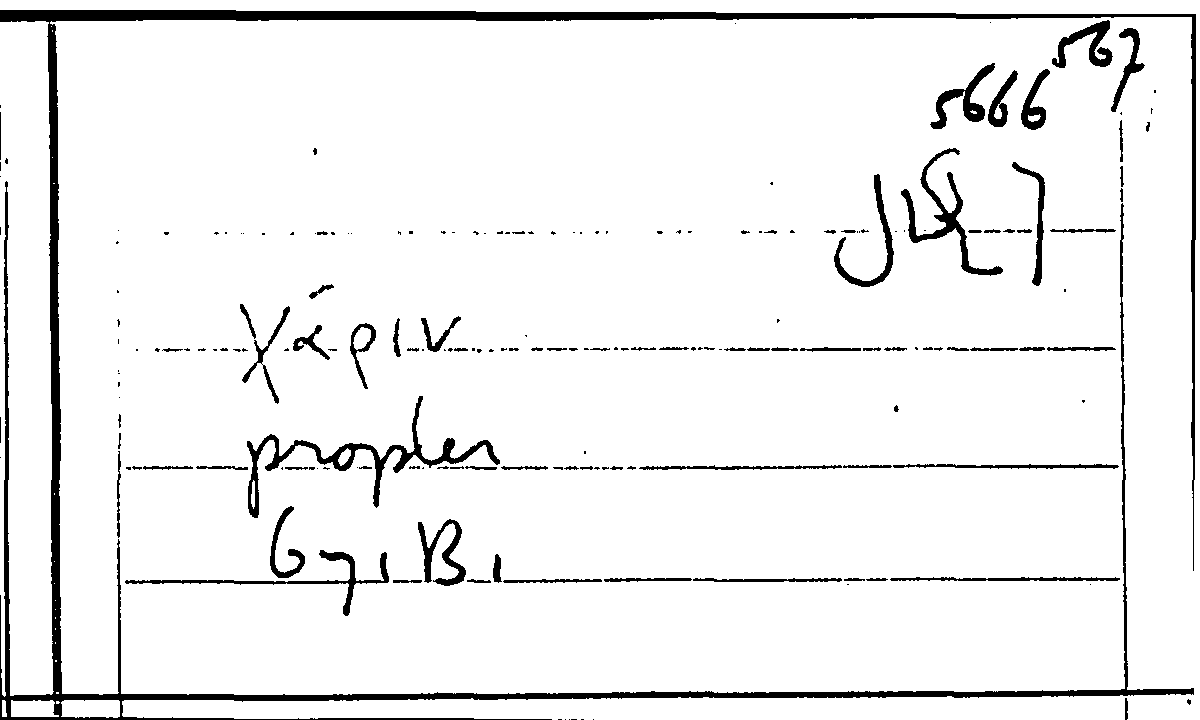 567
5666
χάριν
propter
67, B,